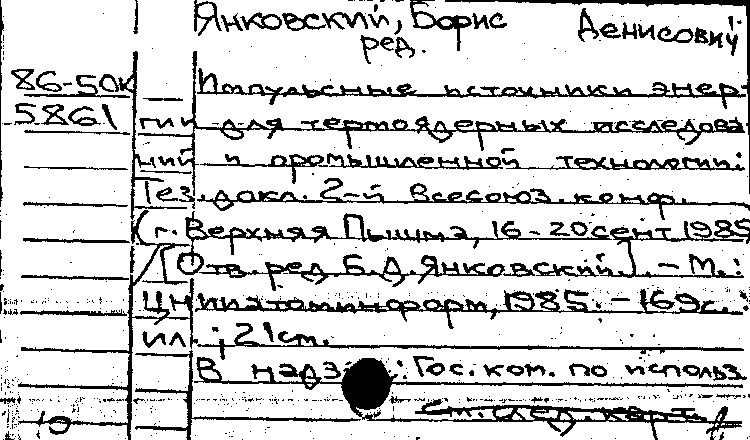 Янковский, Борис Денисович
ред.
86-50к Импульсные источники энер-
5861 гии для термоядерных исследова
ний и промышленной технологии:
Тез. докл. 2-й Всесоюз. конф.
(г. Верхняя Пышма, 16-20 сент 1985
/[Отв. ред. Б.Д. Янковский]. - М.:
ЦНИИатоминформ, 1985. - 169с.:
ил.; 21см.
В надз.: Гос. ком. по использ.
См. след. карт.
10